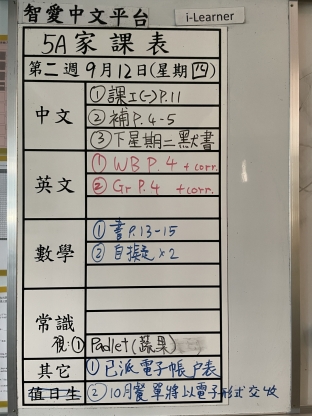 智愛中文平台
i-Learner
5A 家課表
第二週 9月12日(星期四)
中文
① 課工(一) P.11
② 補 P.4-5
③ 下星期二默書
英文
① WB P.4 + corr.
② Gr P.4 + corr.
數學
① 書 P.13-15
② 自擬 × 2
常識
① Padlet (蔬果)
其它
① 已派電子帳户表
值日生
② 10月餐單將以電子形式交收